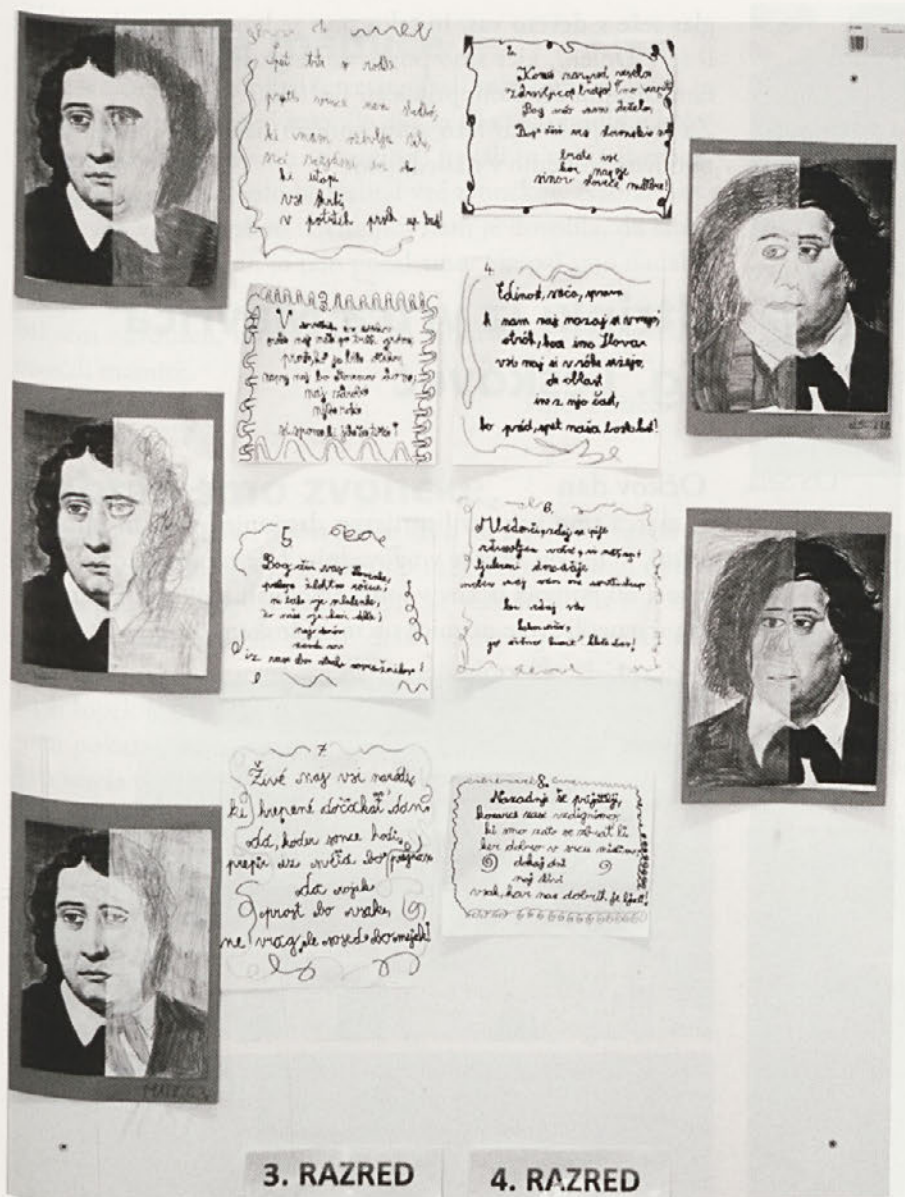 Spet trte so rodile
prijatli vince nam sladkó,
ki nam oživlja žile,
ki utopi
vse skrbi
v potrtih prsih up budi!
2.
Komú narpred veselo
zdravljico, bratje! čmo zapét'
Bog našo nam deželo,
Bog živi ves slovenski svet
brate vse
kar nas je
sinov sloveče matere!
3.
V sovražnike
naj
prost, ko je bila očakov,
naprej naj bo Slovencov dom;
naj zdrobé
njih roké
si spone, ki jih težé!
4.
Edinost, sreča, sprava
k nam naj nazaj se vrnejo
otrók, kar ima Slava
vsi naj si v róke sežejo,
de oblast
in z njo čast,
ko préd, spet naša boste last!
5.
Bog živi vas Slovenke,
prelepe žlahtne rožice,
ni take je mladenke,
ko naše je krvi dekle;
naj sinóv
zarod nov
iz vas bo strah sovražnikov!
6.
Mladenči, zdaj se pije
zdravljica vaša, vi naš up!
ljubezni domačije
noben naj vam ne usmŕti strup
ker zdaj vas
kakor nas,
jo sŕčno bránit' kliče čas!
7.
Živé naj vsi naródi,
ki hrepené dočakat' dan,
da, koder sonce hodi,
prepir iz svéta bo pregnan
da rojak
prost bo vsak,
ne vrag, le sosed bo mejak!
8.
Nazadnje še, prijatlji,
kozarce zase vzdignimo,
ki smo zato se zbrat'li
ker dobro v srcu mislimo
dokaj dni
naj živí
vsak, kar nas dobrih je ljudi!
3. RAZRED
4. RAZRED